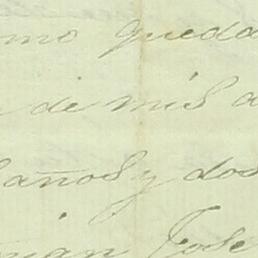 mo queda
de mis a
años y dos
José